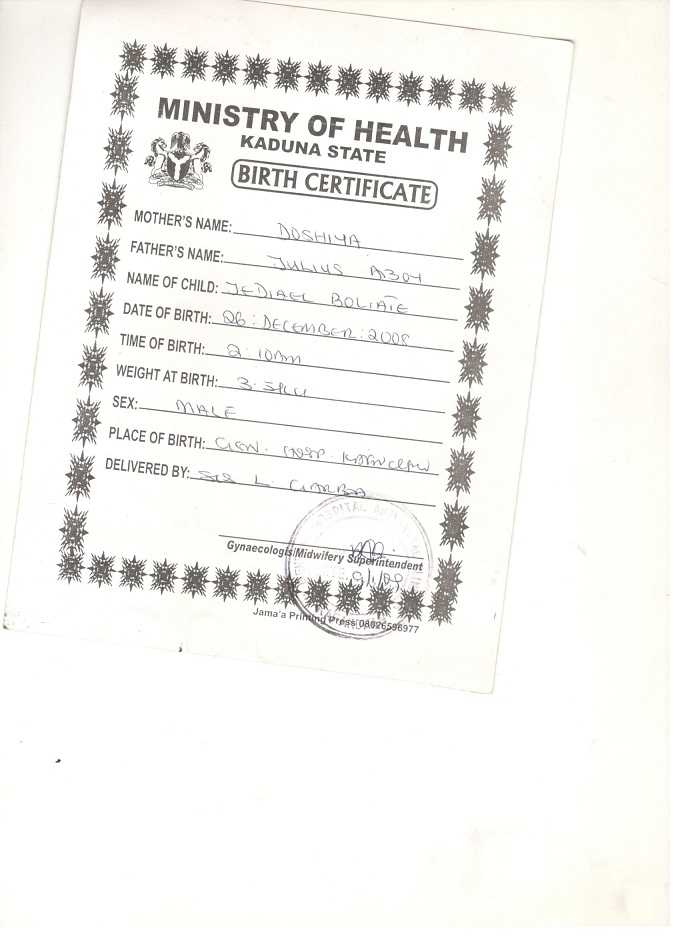 MINISTRY OF HEALTH
KADUNA STATE
BIRTH CERTIFICATE
MOTHER'S NAME: DOSHIYA
FATHER'S NAME: JULIUS
NAME OF CHILD: JEDIAEL
DATE OF BIRTH: 26: DECEMBER: 2008
TIME OF BIRTH: 2:10am
WEIGHT AT BIRTH: 3.5KG
SEX: MALE
PLACE OF BIRTH: GEN. HOSP.
DELIVERED BY: L. GARBA
HOSPITAL
Gynaecologis/Midwifery Superintendent
9/1/09
Jama'a Printing Press 08026596977